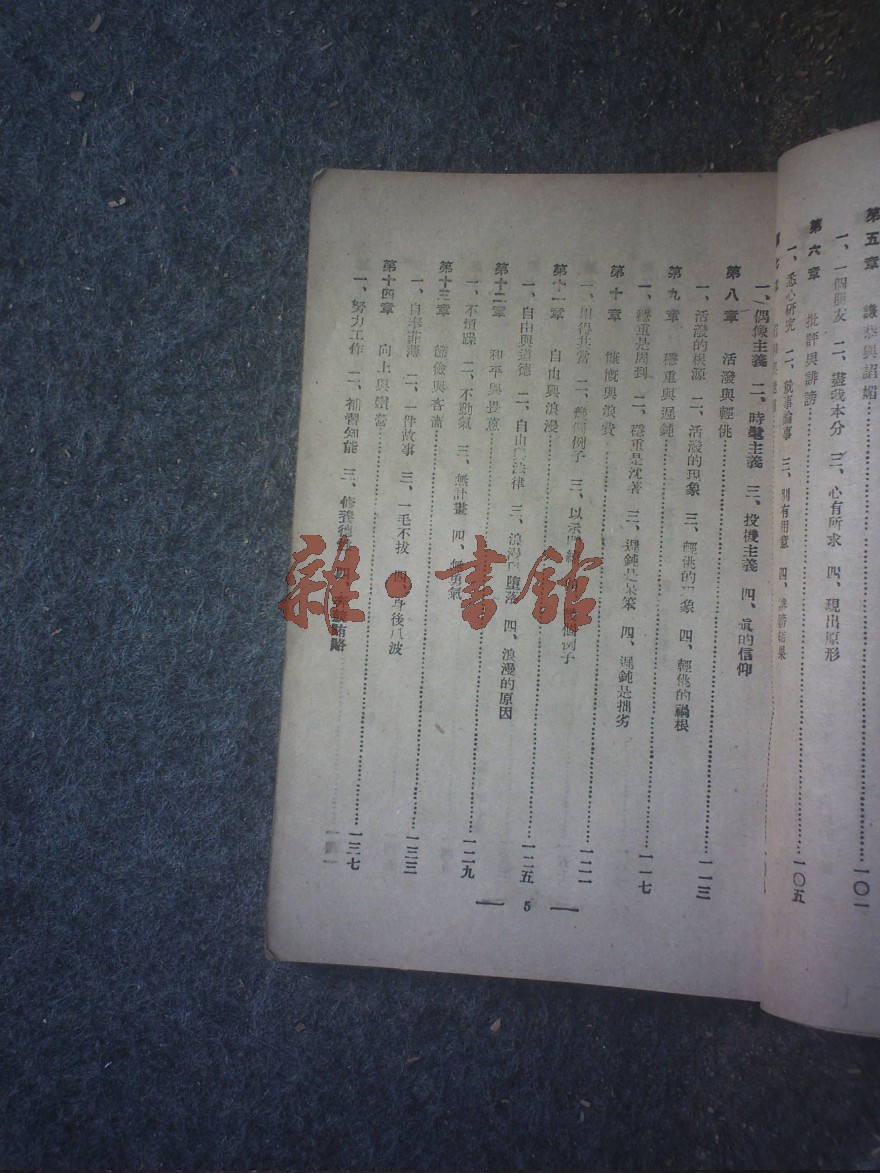 第五章 謙恭與諂媚……一〇一
一、一個朋友 二、盡我本分 三、心有所求 四、現出原形
第六章 批評與誹謗……一〇五
一、悉心研究 二、就事論事 三、別有用意 四、誹謗結果
一、偶像主義 二、時髦主義 三、投機主義 四、眞的信仰
第八章 活潑與輕佻……一一三
一、活潑的根源 二、活潑的現象 三、輕佻的現象 四、輕佻的禍根
第九章 穩重與遲鈍……一一七
一、穩重是周到 二、穩重是沈著 三、遲鈍是呆笨 四、遲鈍是拙劣
第十章 慷慨與浪費……一二一
一、用得其當 二、幾個例子 三、以示闊綽 例子
第十一章 自由與浪漫……一二五
一、自由與道德 二、自由與法律 三、浪漫與墮落 四、浪漫的原因
第十二章 和平與畏葸……一二九
一、不煩躁 二、不動氣 三、無計畫 四、無勇氣
第十三章 節儉與吝嗇……一三三
一、自奉菲薄 二、一件故事 三、一毛不拔 四、身後風波
第十四章 向上與鑽營……一三七
一、努力工作 二、補習知能 三、修養德 賄賂
5
雜·書館